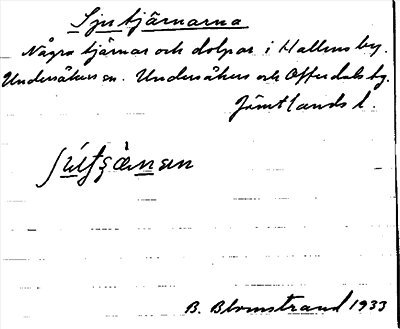 Sju tjärnarna
Några tjärnar och dolpar i Hallens by.
Undersåkers sn. Undersåkers och Offerdals tg.
Jämtlands l.
B. Blomstrand 1933